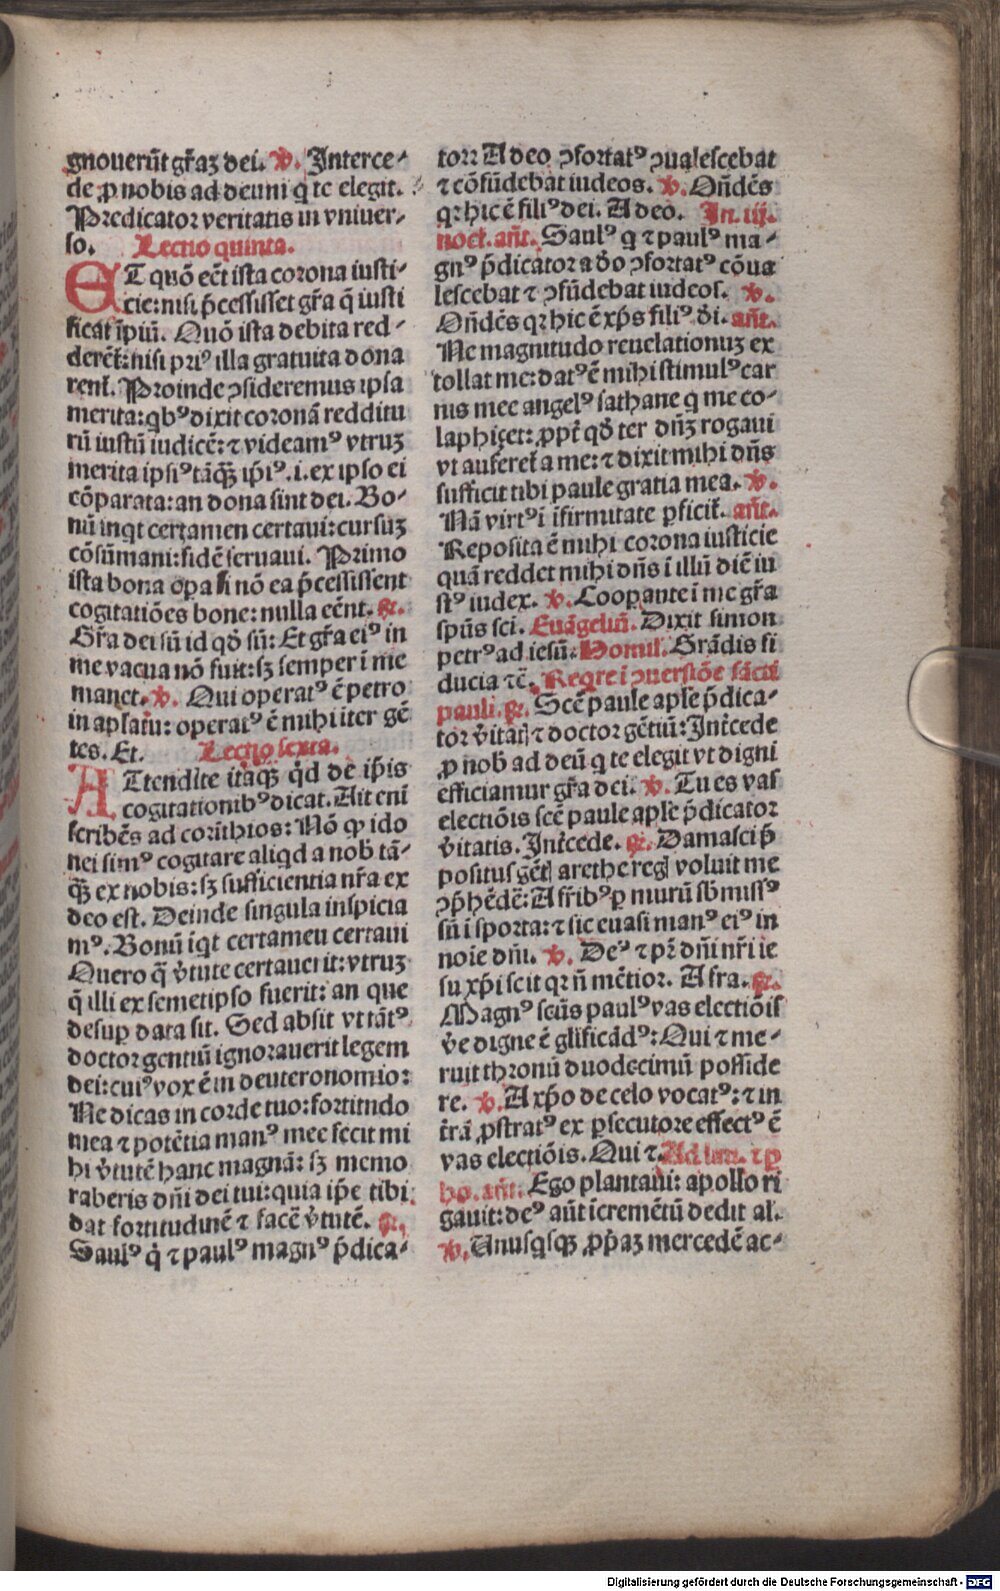 gnouerūt gr̄aꝫ dei. ℣. Interce⸗
de ꝓ nobis ad deum q te elegit.
Predicator veritatis in vniuer⸗
so. Lectio quinta.
ET quō eēt ista corona iusti⸗
cie: nisi p̄cessisset gr̄a q̄ iusti
ficat īpiū. Quō ista debita red⸗
deret̄: nisi priꝰ illa gratuita dona
rent̄. Proinde ꝯsideremus ipsa
merita: qbꝰ dixit coronā redditu
rū iustū iudicē: ⁊ videamꝰ vtruꝫ
merita ipsiꝰ tāqꝫ̄ ip̄iꝰ .i. ex ipso ei
cōparata: an dona sint dei. Bo⸗
nū inqt certamen certaui: cursuꝫ
cōsūmaui: fidē seruaui. Primo
ista bona opa si nō ea p̄cessissent
cogitatiōes bone: nulla eēnt. ℟.
Gr̄a dei sū id qd̄ sū: Et gr̄a eiꝰ in
me vacua nō fuit: sꝫ semper ī me
manet. ℣. Qui operatꝰ ē petro
in apl̄atū: operatꝰ ē mihi iter gē
tes. Et. Lectio sexta.
ATtendite itaqꝫ qd̄ de ip̄is
cogitationibꝰ dicat. Ait eni
scribēs ad corīthios: Nō ꝙ ido
nei simꝰ cogitare aliqd a nob̄ tā⸗
qꝫ̄ ex nobis: sꝫ sufficientia nr̄a ex
deo est. Deinde singula inspicia
mꝰ. Bonū īqt certameu certaui
Quero q̄ v̄tute certauerit: vtruꝫ
q̄ illi ex semetipso fuerit: an que
desuꝑ data sit. Sed absit vt tātꝰ
doctor gentiū ignorauerit legem
dei: cuiꝰ vox ē in deuteronomio:
Ne dicas in corde tuo: fortitudo
mea ⁊ potētia manꝰ mee fecit mi
hi v̄tutē hanc magnā: sꝫ memo
raberis dn̄i dei tui: quia ip̄e tibi
dat fortitudinē ⁊ facē v̄tutē. ℟.
Saulꝰ q̄ ⁊ paulꝰ magnꝰ p̄dica⸗
torꝛ Adeo ꝯfortatꝰ ꝯualescebat
⁊ cōfūdebat iudeos. ℣. On̄dēs
qꝛ hic ē filiꝰ dei. Adeo. In .iij.
noct̄. an̄t. Saulꝰ q ⁊ paulꝰ ma⸗
gnꝰ p̄dicator adō ꝯfortatꝰ cōua
lescebat ⁊ ꝯfūdebat iudeos. ℣.
On̄dēs qꝛ hic ē xp̄s filiꝰ d̄i. an̄t.
Ne magnitudo reuelationuꝫ ex
tollat me: datꝰ ē mihi stimulꝰ car
nis mee angelꝰ sathane q me co⸗
laphiȥet: ꝓpt̄ qd̄ ter dn̄ꝫ rogaui
vt auferet̄ a me: ⁊ dixit mihi dn̄s
sufficit tibi paule gratia mea. ℣.
Nā virtꝰ ī īfirmitate ꝑficit̄. an̄t.
Reposita ē mihi corona iusticie
quā reddet mihi dn̄s ī illū diē iu
stꝰ iudex. ℣. Cooꝑante ī me gr̄a
spūs sci. Euāgeliū. Dixit simon
petrꝰ ad iesū: Homil̄. Grādis fi
ducia ⁊c̄. Reqre ī ꝯuersiōe sācti
pauli. ℟. Scē paule apl̄e p̄dica⸗
tor v̄itatꝭ ⁊ doctor gētiū: Int̄cede
ꝓ nob̄ ad deū q te elegit vt digni
efficiamur gr̄a dei. ℣. Tu es vas
electiōis scē paule apl̄e p̄dicator
v̄itatis. Int̄cede. ℟. Damasci p̄
positus gētꝭ arethe regꝭ voluit me
ꝯp̄hēdē: A fr̄ibꝰ ꝑ murū sb̄missꝰ
sū ī sporta: ⁊ sic euasi manꝰ eiꝰ in
noīe dn̄i. ℣. Deꝰ ⁊ pr̄ dn̄i nr̄i ie
su xp̄i scit qꝛ n̄ mētior. A fra. ℟.
Magnꝰ scūs paulꝰ vas electiōis
v̄e digne ē glīficādꝰ: Qui ⁊ me⸗
ruit thronū duodecimū posside
re. ℣. A xp̄o de celo vocatꝰ: ⁊ in
tr̄ā ꝓstratꝰ ex ꝑsecutore effectꝰ ē
vas electiōis. Qui ⁊. Ad lau. ⁊ ꝑ
ho. an̄t. Ego plantaui: apollo ri
gauit: deꝰ aūt īcremētū dedit al̄.
℣. Unusqsqꝫ ꝓp̄aꝫ mercedē ac⸗
Digitalisierung gefördert durch die Deutsche Forschungsgemeinschaft - DFG